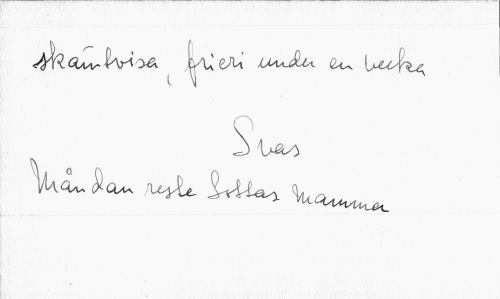 skämtvisa, frieri under en vecka
Svas
Måndan reste Lottas Mamma